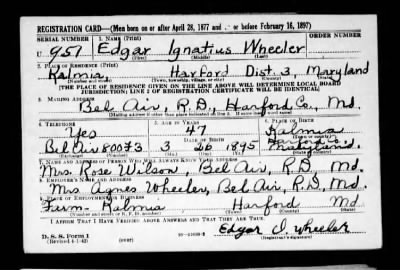 REGISTRATION CARD—(Men born on or after April 28, 1877 and on or before February 16, 1897)
SERIAL NUMBER 1. NAME (Print)
U 951 Edgar Ignatius Wheeler
(First) (Middle) (Last)
2. PLACE OF RESIDENCE (Print)
Kalmia, Harford Dist. 3, Maryland
(Number and street) (Town, township, village, or city) (County) (State)
[THE PLACE OF RESIDENCE GIVEN ON THE LINE ABOVE WILL DETERMINE LOCAL BOARD
JURISDICTION; LINE 2 OF REGISTRATION CERTIFICATE WILL BE IDENTICAL]
3. MAILING ADDRESS
Bel Air, R.D., Harford Co., Md.
(Mailing address if other than place indicated on line 2. If same insert word same)
4. TELEPHONE 5. AGE IN YEARS 6. PLACE OF BIRTH
Yes 47 Kalmia
DATE OF BIRTH Harford Co.
(Town or county)
Bel Air 800F3 3 26 1895 Maryland
(Exchange) (Number) (Mo.) (Day) (Yr.) (State or country)
7. NAME AND ADDRESS OF PERSON WHO WILL ALWAYS KNOW YOUR ADDRESS
Mrs. Rose Wilson, Bel Air, R.D. Md.
8. EMPLOYER'S NAME AND ADDRESS
Mrs. Agnes Wheeler, Bel Air, R.D. Md.
9. PLACE OF EMPLOYMENT OR BUSINESS
Farm- Kalmia Harford Md.
(Number and street or R. F. D. number) (Town) (County) (State)
I AFFIRM THAT I HAVE VERIFIED ABOVE ANSWERS AND THAT THEY ARE TRUE.
D. S. S. Form 1
(Revised 4-1-42) (over)
Edgar I. Wheeler
(Registrant's signature)